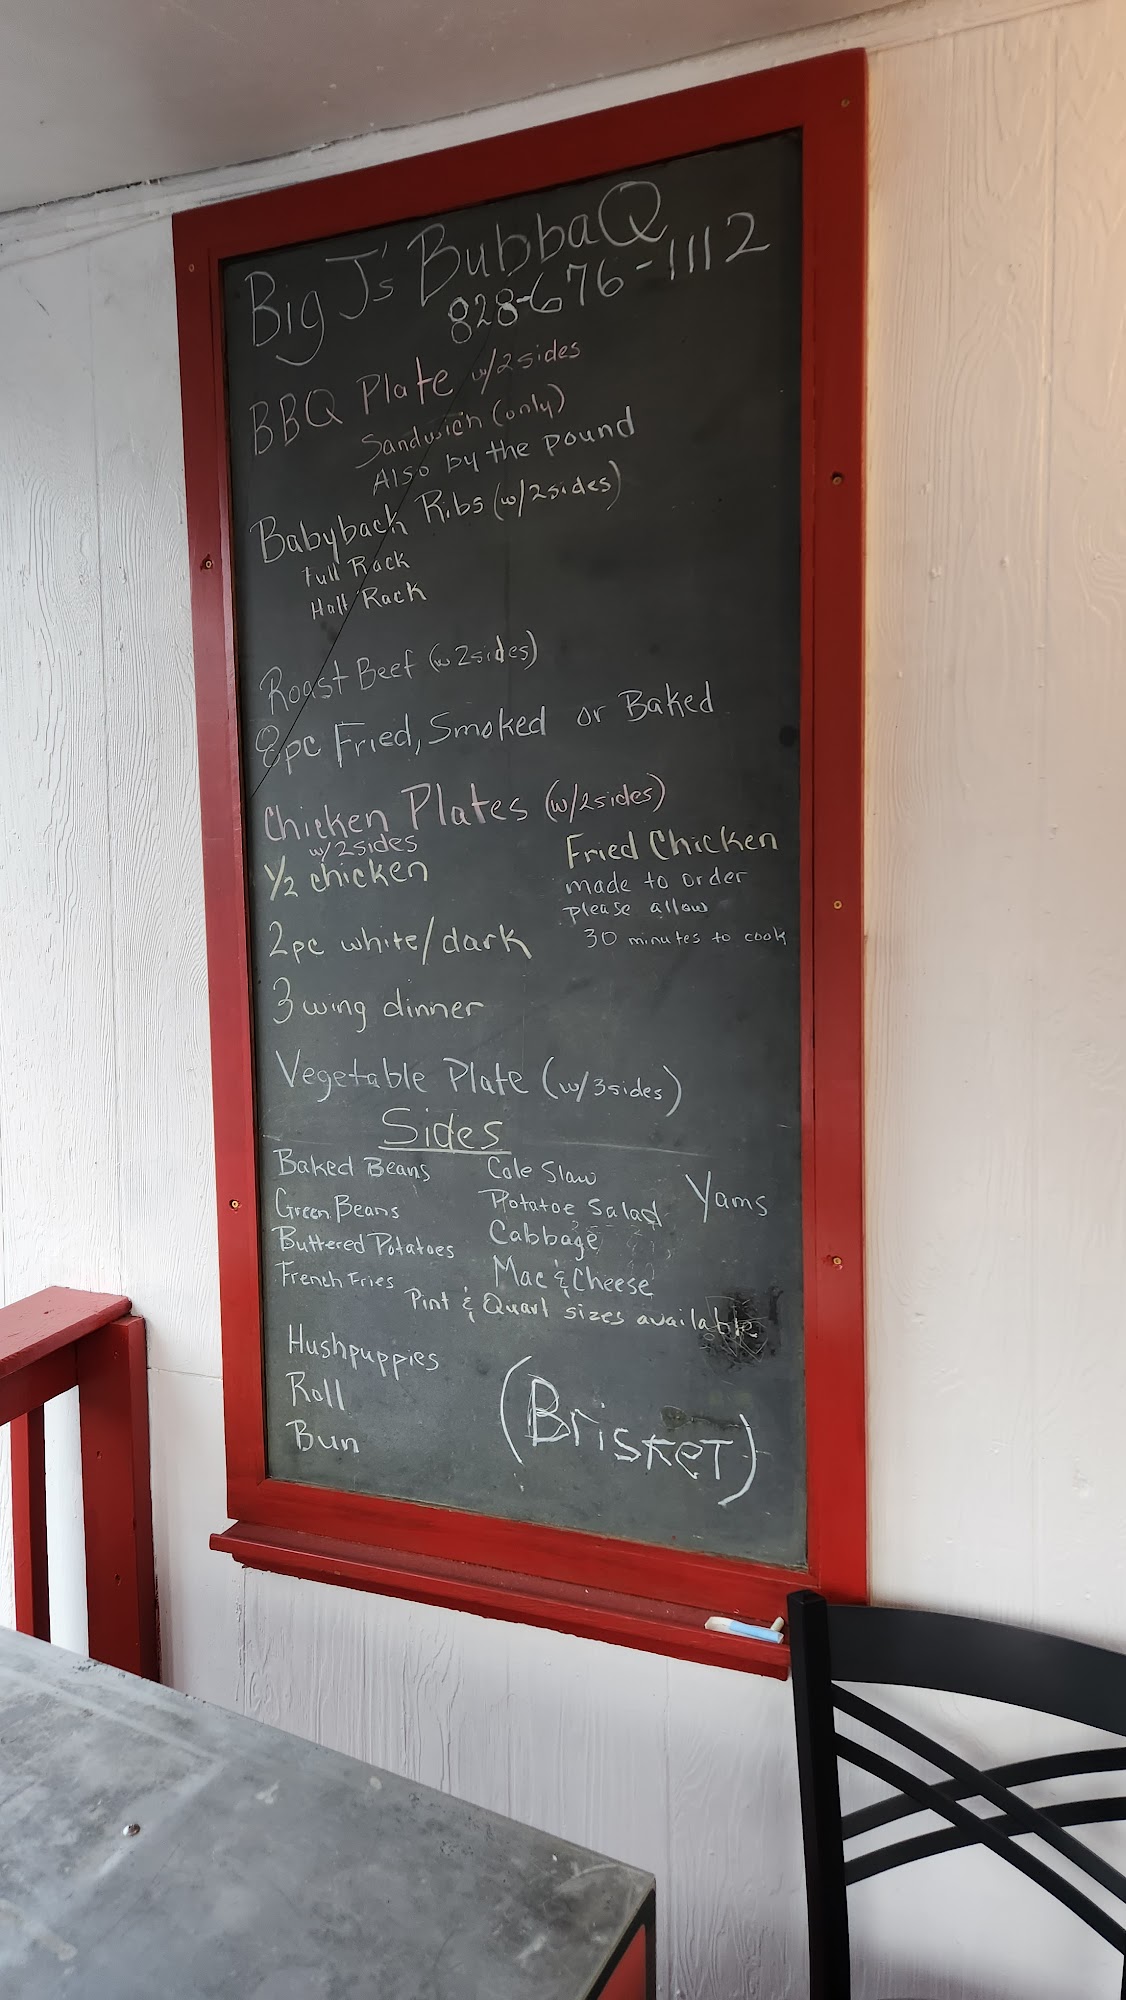 Big J's BubbaQ
828-676-1112
BBQ Plate w/2sides
Sandwich (only)
Also by the pound
Babyback Ribs (w/2sides)
Full Rack
Half Rack
Roast Beef (w 2sides)
8pc Fried, Smoked or Baked
Chicken Plates (w/2sides)
w/2sides
1/2 chicken
2pc white/dark
3 wing dinner
Fried Chicken
made to order
please allow
30 minutes to cook
Vegetable Plate (w/3sides)
Sides
Baked Beans
Green Beans
Buttered Potatoes
French Fries
Cole Slaw
Potatoe Salad
Cabbage
Mac & Cheese
Yams
Pint & Quart sizes available
Hushpuppies
Roll
Bun
(Brisket)